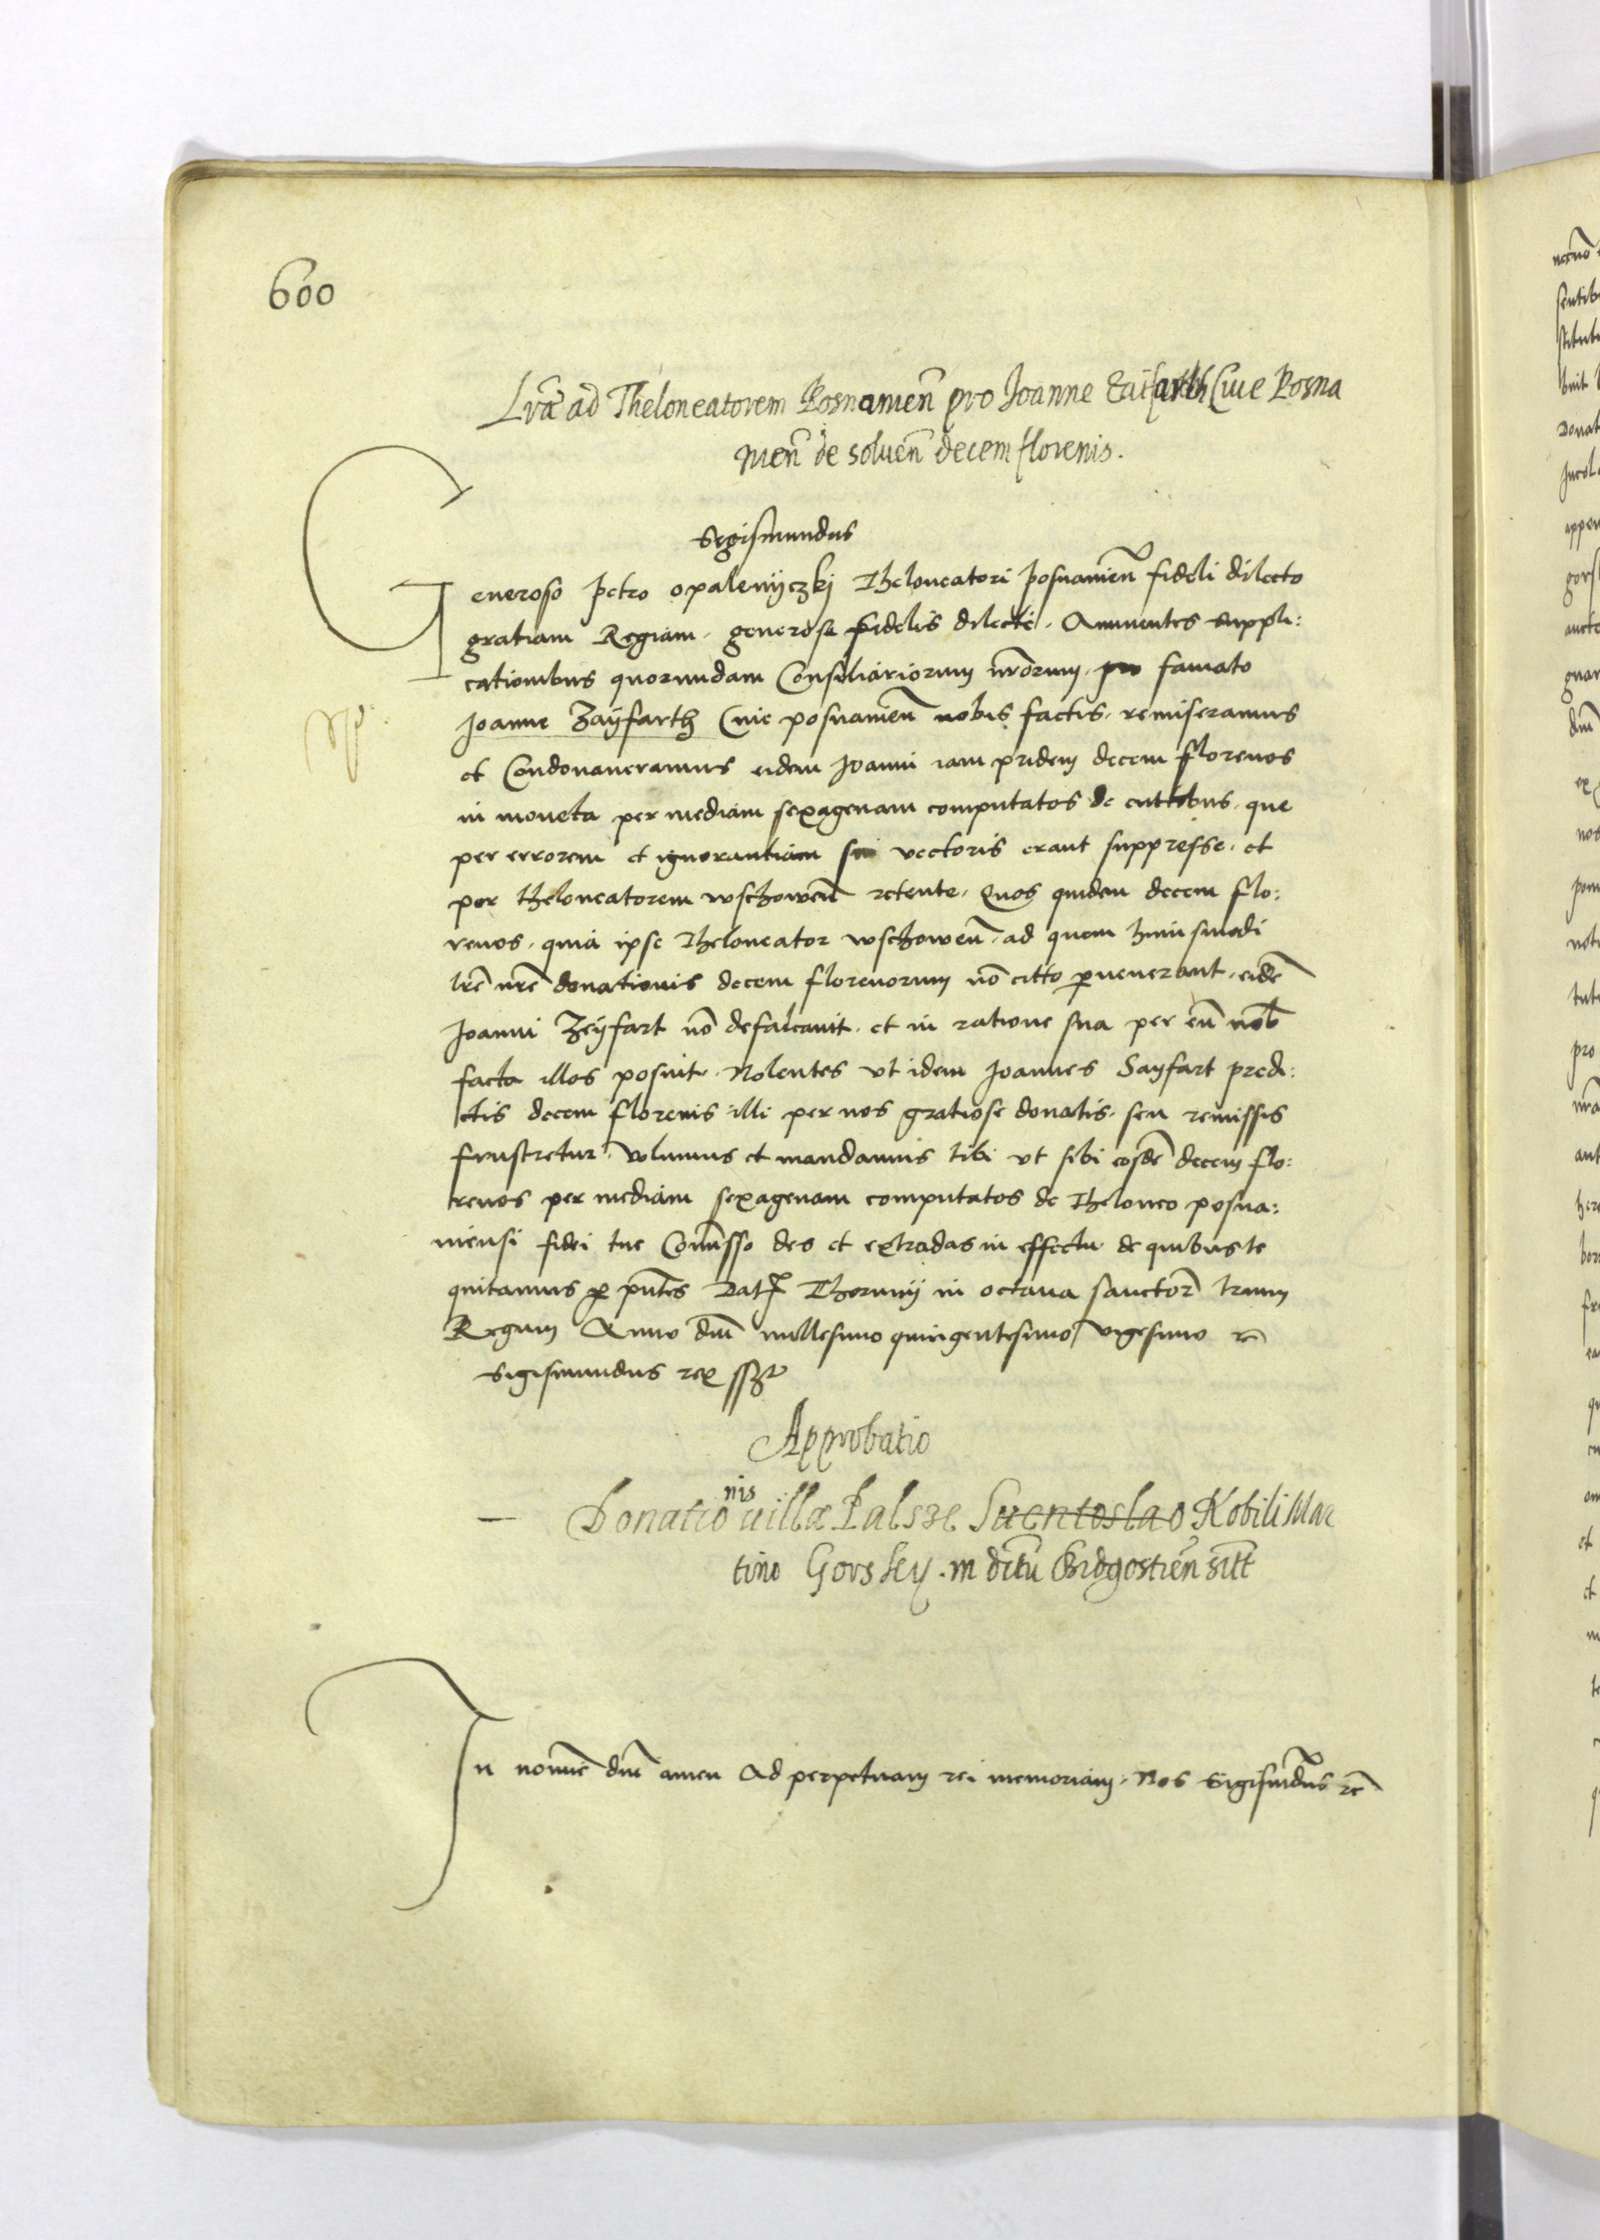 600
Lrã ad Theloneatorem Posnanien̄ pro Joanne Caifarth Ciue Posna
nien̄ de soluen̄ decem florenis.
Sigismundus
Generoso petro opalenÿczkj Theloneatori posnanien̄ fideli dilecto
gratiam Regiam. generose fidelis dilecte. Annuentes suppli:
cationibus quorundam Consiliariorum nr̄orum. pro famato
Joanne Zayfarth Ciue posnanien̄ nobis factis. remiseramus
et Condonaueramus eidem Joanni iam pridem decem florenos
in moneta per mediam sexagenam computatos de cuttibus. que
per errorem et ignorantiam sui vectoris erant suppresse. et
per theloneatorem wschowen̄ retente. Quos quidem decem flo:
renos. quia ipse Theloneator wschowen̄. ad quem huiusmodi
lrē nrē donationis decem florenorum nō citto peruenerant. eidē
Joanni Zeyfart nō defalcauit. et in ratione sua per eū nob
facta illos posuit. Nolentes vt idem Joannes Sayfart predi:
ctis decem florenis illi per nos gratiose donatis. seu remissis
frustretur. volumus et mandamus tibi vt sibi eosdē decem flo:
renos per mediam sexagenam computatos de Theloneo posna:
niensi fidei tue Com̄isso des et extradas in effectu de quibus te
quitamus per pn̄tes Dat Thorunij in octaua sanctor̄ trium
Regum Anno dni millesimo quingentesimo vigesimo rē
Sigismundus rex sszt
Approbatio
— Donatio nis villæ Palsze Suentoslao Nobili Mar
tino Gorsky. in distū Bidgostien̄ sitt
In nomīe dnī amen Ad perpetuam rei memoriam. Nos Sigismūdus rē